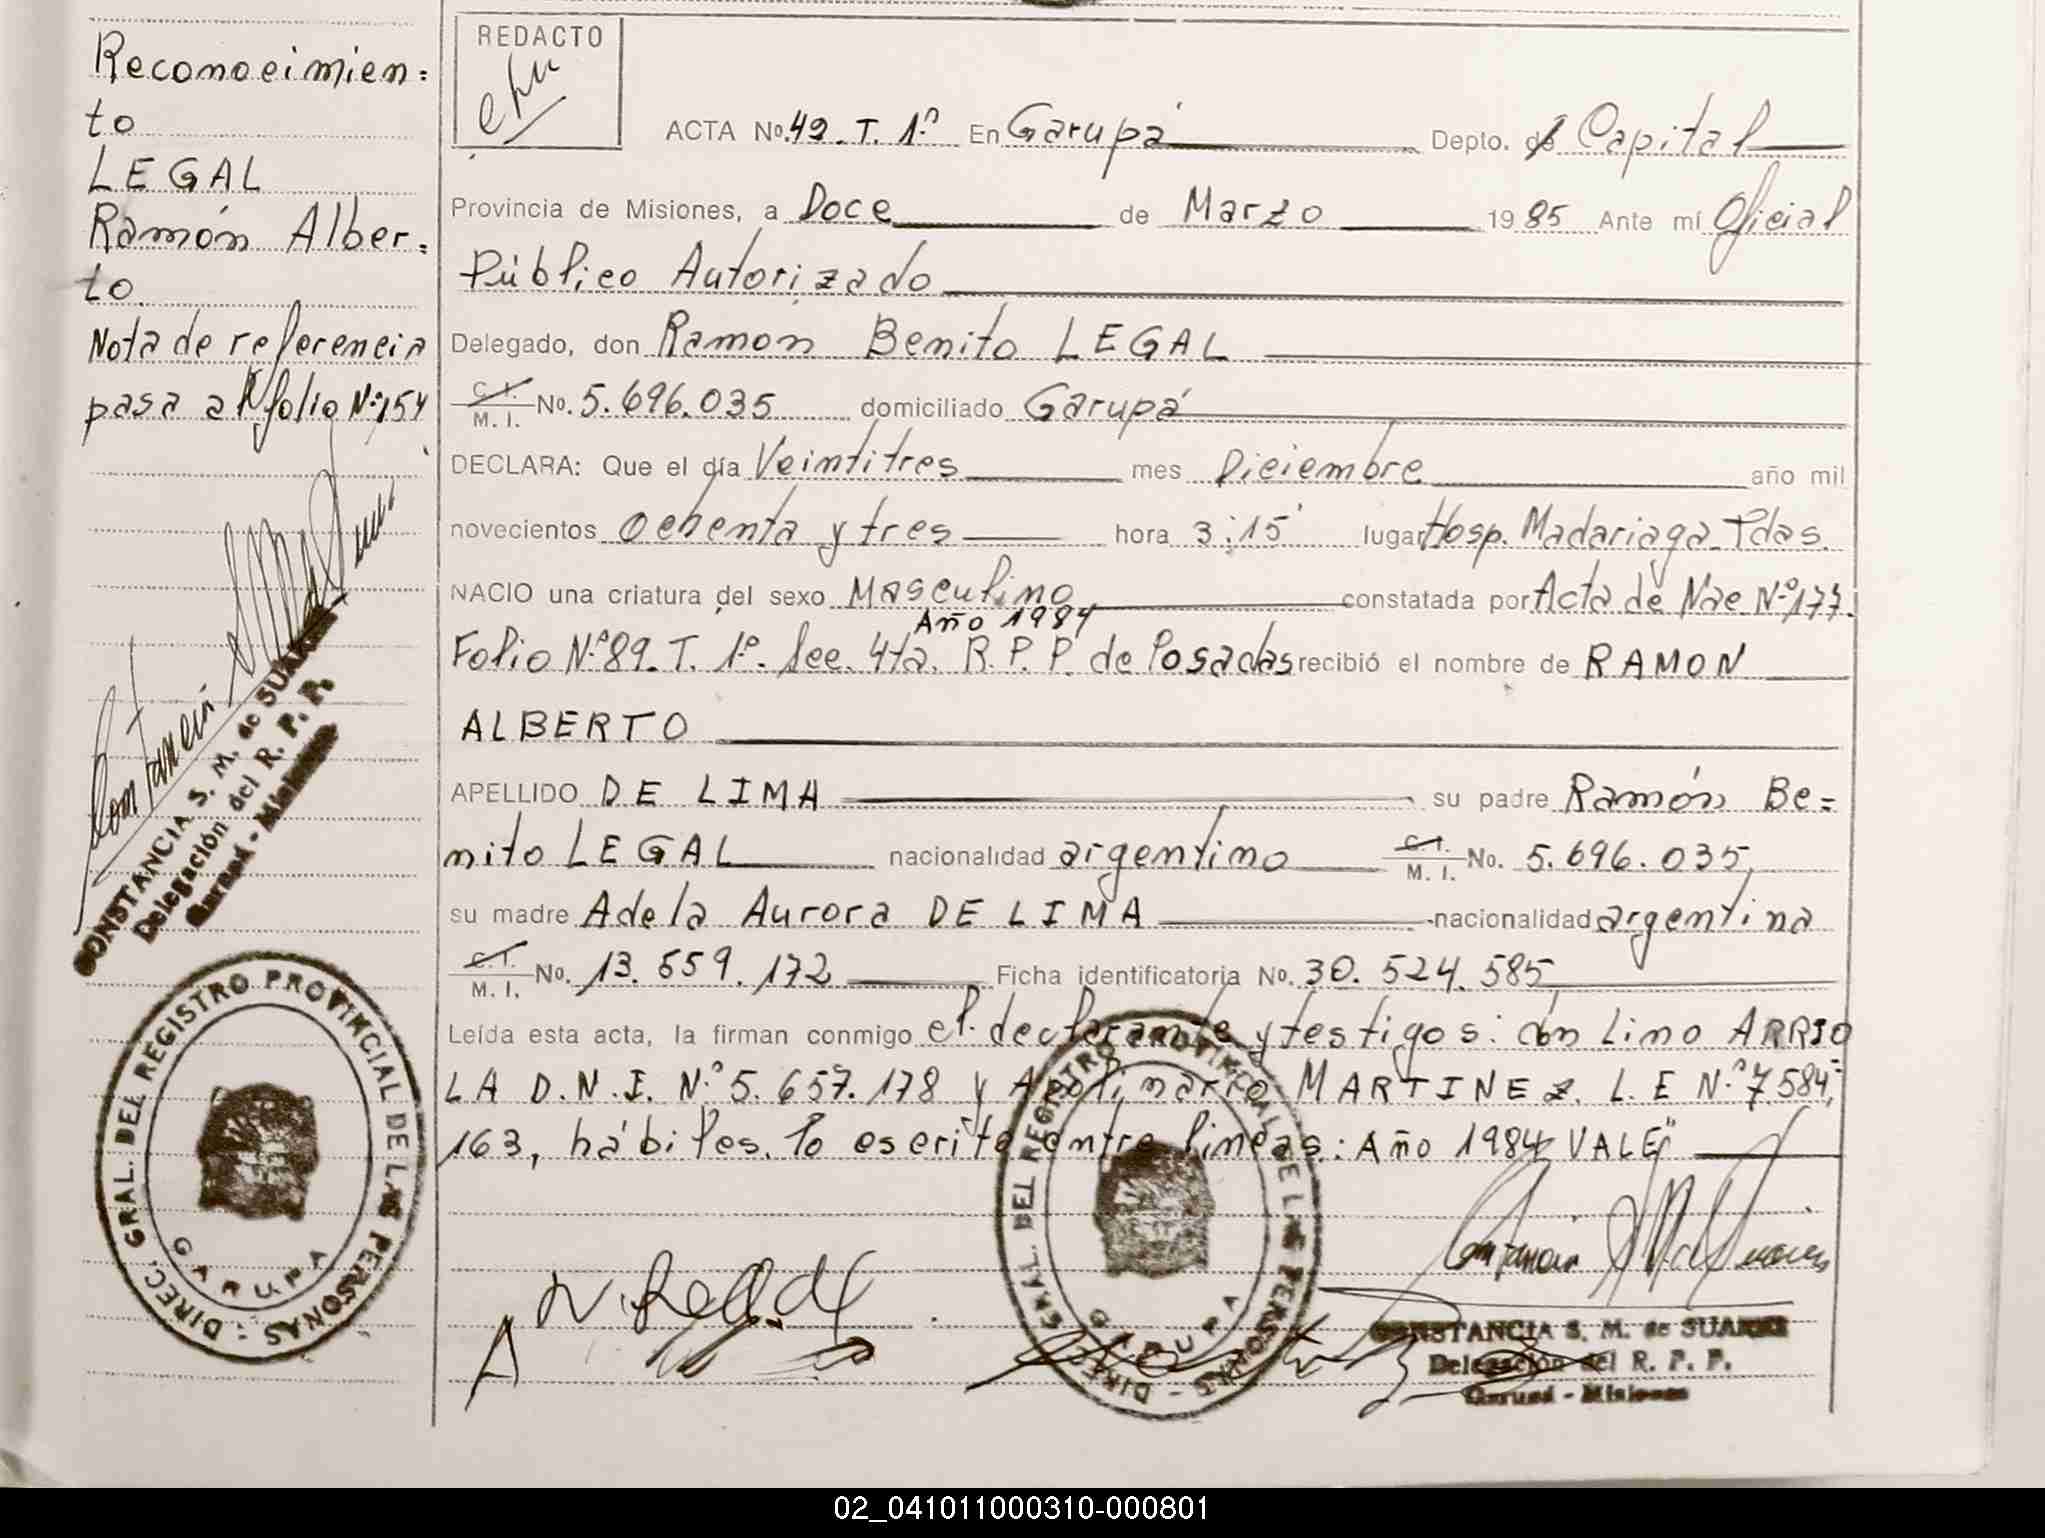 Reconocimien=
to
LEGAL
Ramón Alber=
to
Nota de referencia
pasa a folio Nº 154
CONSTANCIA S. M. de SUAREZ
Delegación del R. P. P.
Garupá - Misiones
DIREC. GRAL. DEL REGISTRO PROVINCIAL DE LAS PERSONAS
GARUPA
REDACTO
ACTA No. 49. T. 1º En Garupá Depto. de Capital
Provincia de Misiones, a Doce de Marzo 1985 Ante mí Oficial
Público Autorizado
Delegado, don Ramón Benito LEGAL
C. I. / M. I. No. 5.696.035 domiciliado Garupá
DECLARA: Que el día Veintitres mes Diciembre año mil
novecientos ochenta y tres hora 3:15' lugar Hosp. Madariaga Pdas.
NACIO una criatura del sexo Masculino constatada por Acta de Nac Nº 177.
Año 1984
Folio Nº 89. T. 1º. Sec. 4ta. R. P. P. de Posadas recibió el nombre de RAMON
ALBERTO
APELLIDO DE LIMA su padre Ramón Be=
nito LEGAL nacionalidad argentino C. I. / M. I. No. 5.696.035,
su madre Adela Aurora DE LIMA nacionalidad argentina
C. I. / M. I. No. 13.559.172 Ficha identificatoria No. 30.524.585
Leída esta acta, la firman conmigo el declarante y testigos: don Lino ARRIO
LA D.N.I. Nº 5.657.178 y Apolinario MARTINEZ. L.E Nº 7.584,=
163, hábiles. lo escrito entre lineas: Año 1984 VALE"
DIREC. GRAL. DEL REGISTRO PROVINCIAL DE LAS PERSONAS
GARUPA
CONSTANCIA S. M. de SUAREZ
Delegación del R. P. P.
Garupá - Misiones
02_041011000310-000801